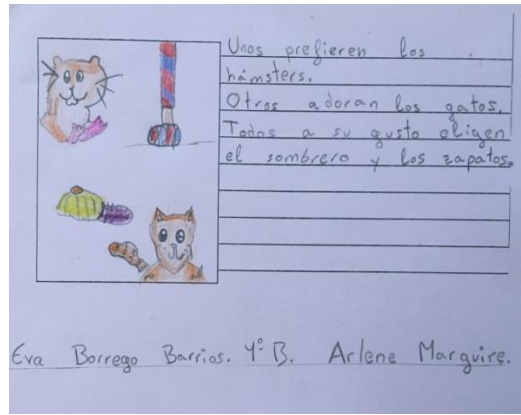 Unos prefieren los
hámsters.
Otros adoran los gatos.
Todos a su gusto eligen
el sombrero y los zapatos.
Eva Borrego Barrios. 4º B. Arlene Marguire.